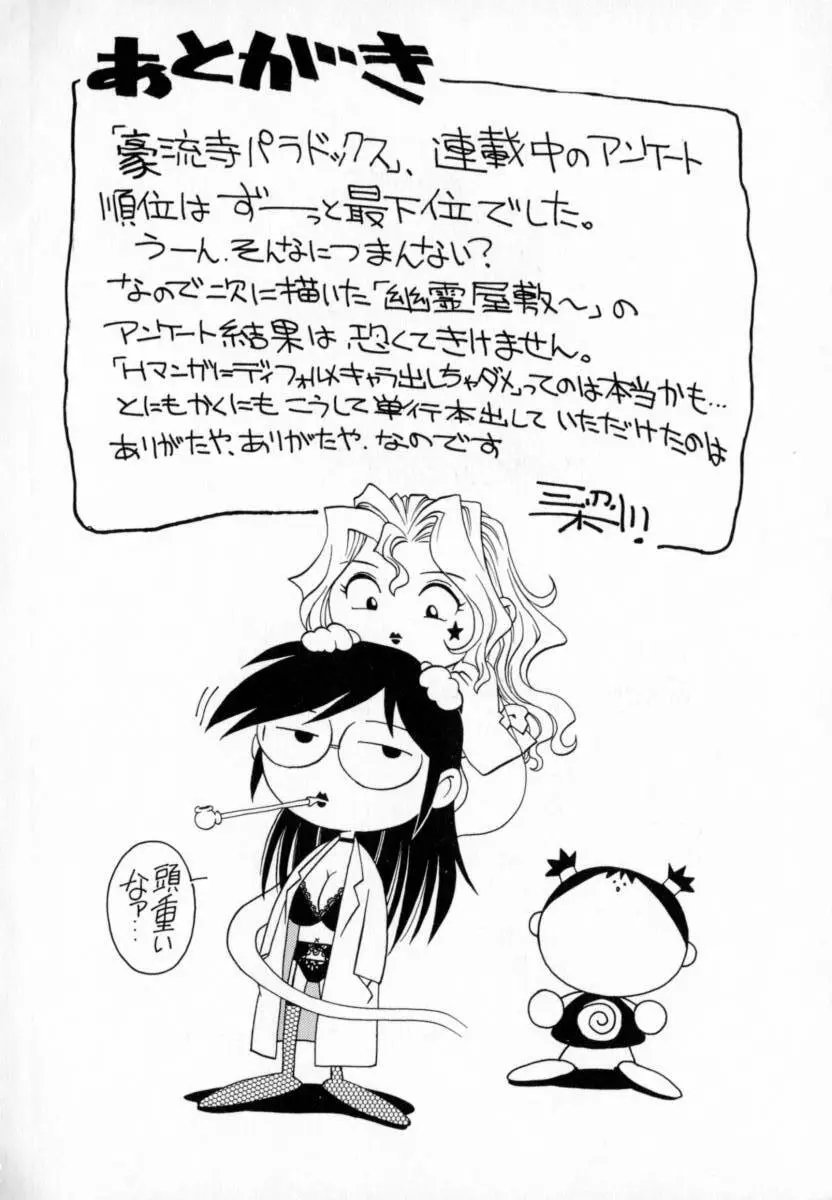 あとがき
「豪流寺パラドックス」、連載中のアンケート
順位はずーーっと最下位でした。
うーん.そんなにつまんない?
なので二次に描いた「幽霊屋敷〜」の
アンケート結果は恐くてきけません。
「Hマンガにディフォルメキャラ出しちゃダメ」ってのは本当かも…
とにもかくにもこうして単行本出していただけたのは
ありがたや、ありがたや.なのです
頭重い
なァ…